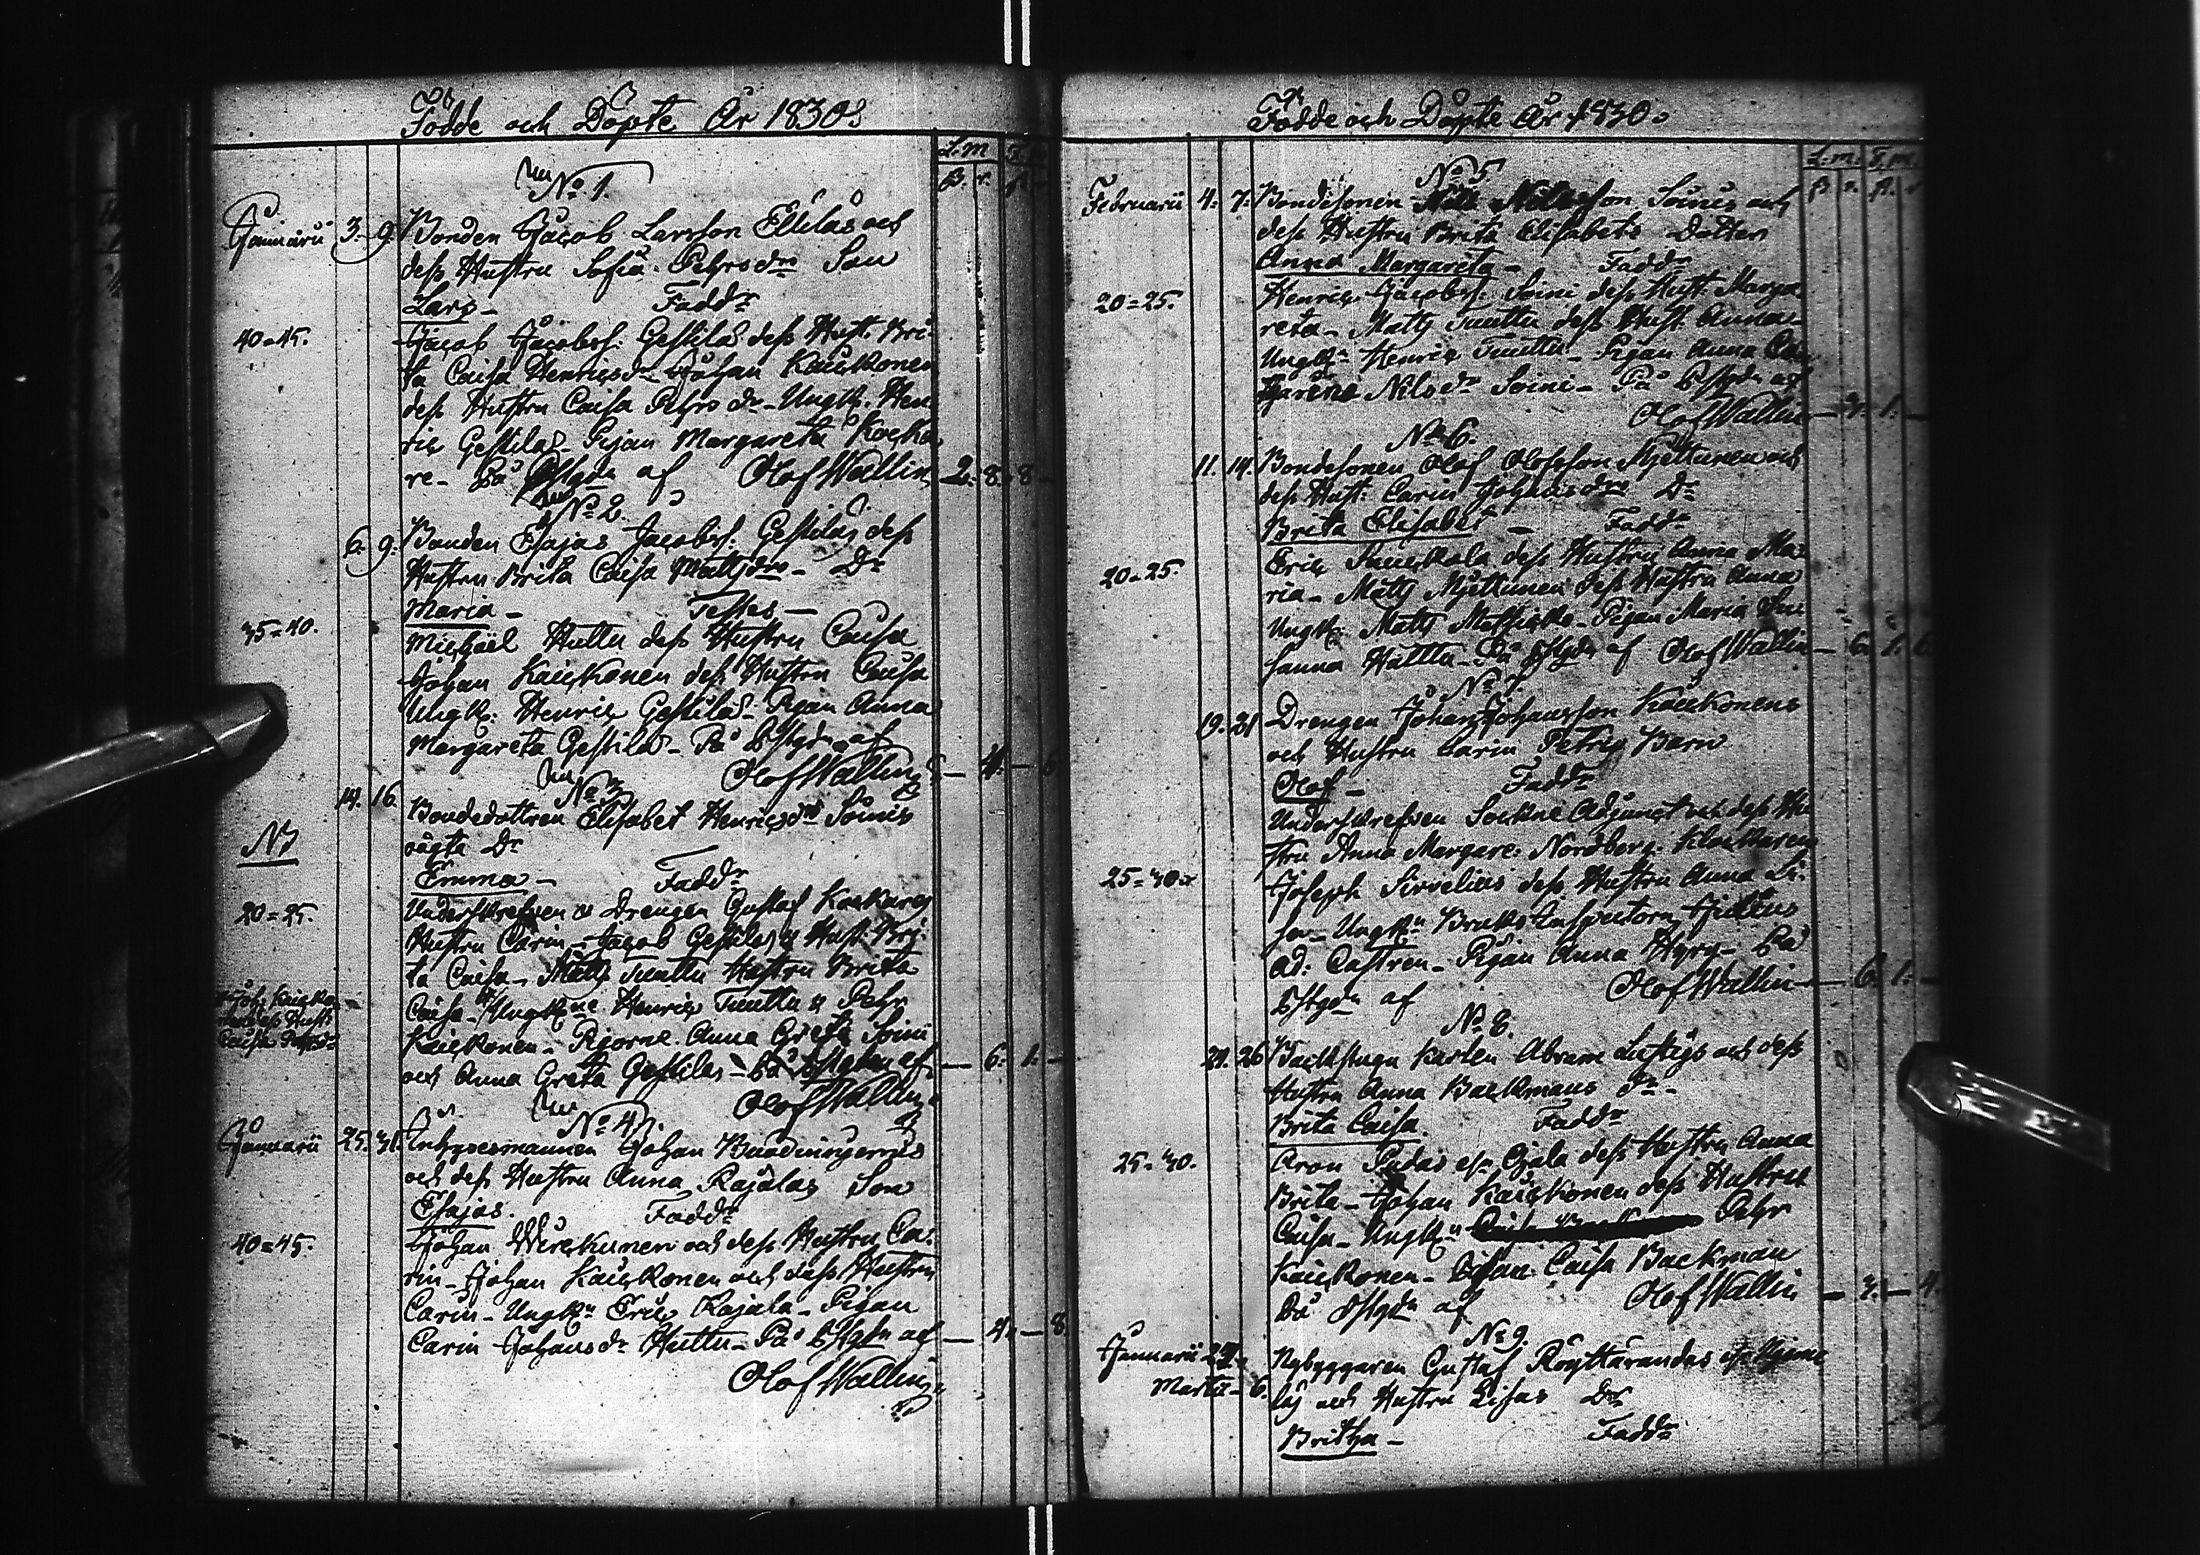 Födde och Döpte År 1830.
L:m
No 1.
Januarii 3. 9. Bonden Jacob Larsson Ellilas och
dess Hustru Sofia Pehrsdr Son
Lars - Faddr
40=45. Jacob Jacobss. Gestilas dess Hust. Bri-
ta Caisa Henricsdr Johan Kaickonen
dess Hustru Caisa Pehrsdr - Ungk. Hen
ric Gestilas - Pigan Margareta
re - På af Olof Wallin 2. 8. 8 -
No 2.
6. 9. Bonden Esajas Jacobss. Gestilas dess
Hustru Brita Caisa Mattsdr - Dr
Maria - Testes -
35=40. Michael Huttu dess Hustru Caisa
Johan Kaickonen dess Hustru Caisa
Ungk. Henric Gestilas - Pigan Anna
Margareta Gestilas - På af
Olof Wallin - 4. - 6
No 3
14. 16. Bondedottren Elisabet Henricsdr Soinis
oägta Dr
Emma - Faddr
20=25. Underskrefven Drengen Gustaf
Hustru Carin - Jacob Gestilas Hust. Bri-
ta Caisa - Matts Tuuttu Hustru Brita
Caisa - Henric Tuuttu Pehr
Kaickonen - Pigorne Anna Greta Soini
och Anna Greta Gestilas - På af - 6. 1. -
Olof Wallin
No 4.
Januarii 25. 31. Johan
och dess Hustru Anna Rajalas Son
Esajas. Faddr
40=45. Johan Wirckunen och dess Hustru Ca-
rin - Johan Kaickonen och dess Hustru
Carin - Ungkn Eric Rajala - Pigan
Carin Johansdr Huttu - På af - 4. - 8.
Olof Wallin
Födde och Döpte År 1830.
L:m: S:m:
No 5
Februarii 4. 7. Bondesonen Nils Nilsson Soinis och
dess Hustru Brita Elisabets Dotter
Anna Margareta - Faddr
20=25. Henric Jacobss. Soini dess Hust. Marga
reta - Matts Tuuttu dess Hust. Anna -
Ungkn Henric Tuuttu - Pigan Anna
Nilsdr Soini - På af
Olof Wallin - 1. -
No 6.
11. 14. Bondesonen Olof Olofsson Myttinen och
dess Hust. Carin Johansdrs Dr
Brita Elisabet - Faddr
20=25. Eric dess Hustru Anna Ma-
ria - Matts Myttinen dess Hustru Anna
Ungk. Matts - Pigan Maria Su
sanna Huttu - På af Olof Wallin - 6. 1. 6
No 7.
19. 21 Drengen Johan Johansson Kaickonens
och Hustru Carin Petris Barn
Olof - Faddr
Underskrefven Sockne Adjunct och dess Hu
stru Anna Margare: Nordberg. Klockaren
25=30. Joseph Sirvelius dess Hustru Anna Li-
sa - Ungkn Bruks Inspectorn
ad: Castren - Pigan Anna - På
af Olof Wallin - 6. 1. -
No 8.
21. 26 Backstugu Karlen Abram Lustigs och dess
Hustru Anna Backmans Dr -
Brita Caisa Faddr
25=30. Aron Pudas dess Hustru Anna
Brita - Johan Kaickonen dess Hustru
Caisa - Ungkn Pehr
Kaickonen - Pigan Caisa Backman
På af Olof Wallin - - 4.
No 9.
Januarii 27. Nybyggaren Gustaf
Martii - 6. och Hustru Lisas Dr
Britha - Faddr